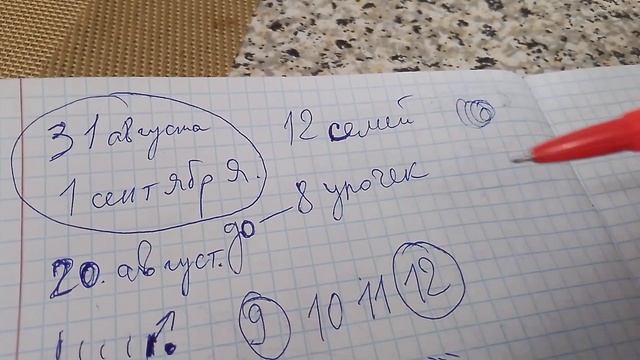 31 августа
12 семей
1 сентября.
20. август. до — 8 урочек
9 10 11 12